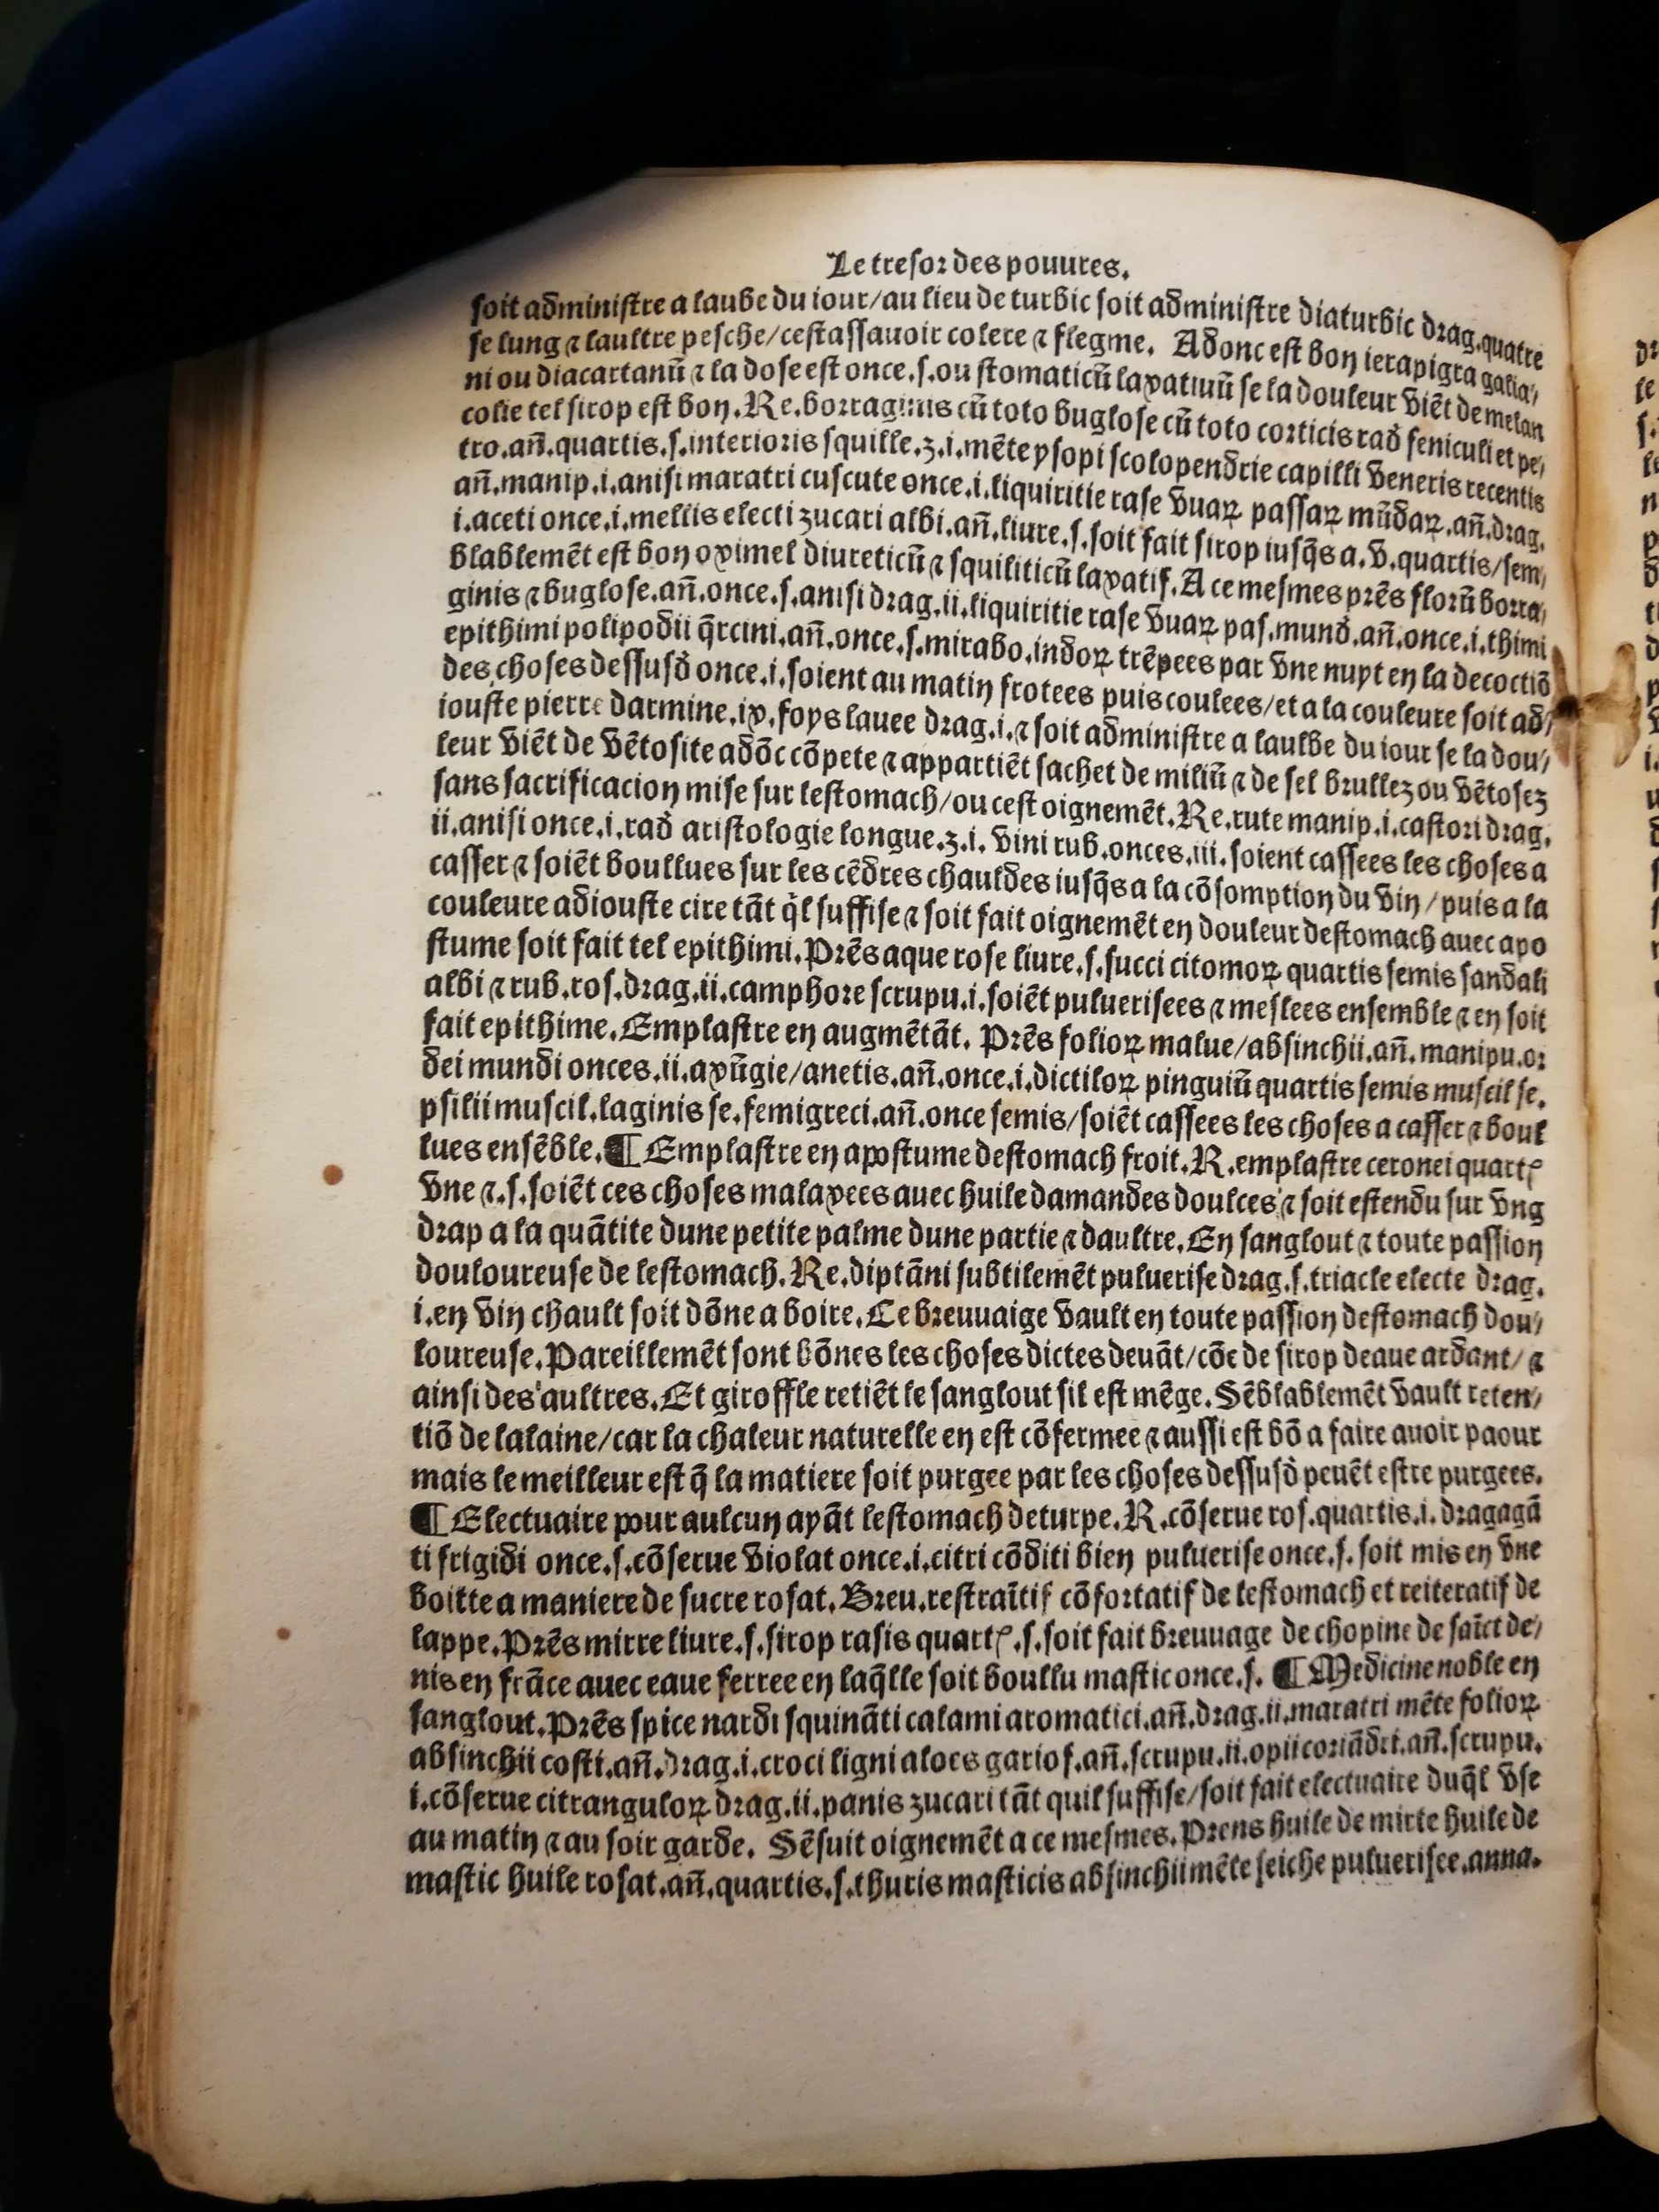 Le tresor des pouures.
soit administre a laube du iour/au lieu de turbic soit administre diaturbic drag.quatre
se lung ⁊ laultre pesche/cestassauoir colere ⁊ flegme. Adonc est bon ierapigra galia/
ni ou diacartanũ ⁊ la dose est once.s.ou stomaticũ laxatiuũ se la douleur viẽt de melan
colie tel sirop est bon.Re.borraginis cũ toto buglose cũ toto corticis rad feniculi et pe/
tro.añ.quartis.s.interioris squille.ʒ.i.mẽte ysopi scolopendrie capilli veneris recentis
añ.manip.i.anisi maratri cuscute once.i.liquiritie rase vuaꝝ passaꝝ mũdaꝝ.añ.drag.
i.aceti once.i.mellis electi zucari albi.añ.liure.s.soit fait sirop iusq̃s a.v.quartis/sem/
blablemẽt est bon oximel diureticũ ⁊ squiliticũ laxatif.A ce mesmes prẽs florũ borra/
ginis ⁊ buglose.añ.once.s.anisi drag.ii.liquiritie rase vuaꝝ pas.mund.añ.once.i.thimi
epithimi polipodii q̃rcini.añ.once.s.mirabo.indoꝝ trẽpees par vne nuyt en la decoctiõ
des choses dessusd once.i.soient au matin frotees puis coulees/et a la couleure soit ad/
iouste pierre darmine.ix.foys lauee drag.i.⁊ soit administre a laulbe du iour se la dou/
leur viẽt de vẽtosite adõc cõpete ⁊ appartiẽt sachet de miliũ ⁊ de sel brullez ou vẽtosez
sans sacrificacion mise sur lestomach/ou cest oignemẽt.Re.rute manip.i.castori drag.
ii.anisi once.i.rad aristologie longue.ʒ.i. vini rub.onces.iii.soient cassees les choses a
casser ⁊ soiẽt boullues sur les cẽdres chauldes iusq̃s a la cõsomption du vin/puis a la
couleure adiouste cire tãt q̇l suffise ⁊ soit fait oignemẽt en douleur destomach auec apo
stume soit fait tel epithimi.Prẽs aque rose liure.s.succi citomoꝝ quartis semis sandali
albi ⁊ rub.ros.drag.ii.camphore scrupu.i.soiẽt puluerisees ⁊ meslees ensemble ⁊ en soit
fait epithime.Emplastre en augmẽtãt. Prẽs folioꝝ malue/absinchii.añ.manipu.or
dei mundi onces.ii.axũgie/anetis.añ.once.i.dictiloꝝ pinguiũ quartis semis muscil se.
psilii muscil.laginis se.femigreci.añ.once semis/soiẽt cassees les choses a casser ⁊ boul
lues ensẽble.¶Emplastre en apostume destomach froit.R.emplastre ceronei quartꝭ
vne ⁊.s.soiẽt ces choses malaxees auec huile damandes doulces ⁊ soit estendu sur vng
drap a la quãtite dune petite palme dune partie ⁊ daultre.En sanglout ⁊ toute passion
douloureuse de lestomach.Re.diptãni subtilemẽt puluerise drag.s.triacle electe drag.
i.en vin chault soit dõne a boire.Ce breuuaige vault en toute passion destomach dou/
loureuse.Pareillemẽt sont bõnes les choses dictes deuãt/cõe de sirop deaue ardant/ ⁊
ainsi des aultres.Et giroffle retiẽt le sanglout sil est mẽge.Sẽblablemẽt vault reten/
tiõ de lalaine/car la chaleur naturelle en est cõfermee ⁊ aussi est bõ a faire auoir paour
mais le meilleur est q̃ la matiere soit purgee par les choses dessusd peuẽt estre purgees.
¶Electuaire pour aulcun ayãt lestomach deturpe.R.cõserue ros.quartis.i.dragagã
ti frigidi once.s.cõserue violat once.i.citri cõditi bien puluerise once.s. soit mis en vne
boitte a maniere de sucre rosat.Breu.restraĩtif cõfortatif de lestomach et reiteratif de
lappe.Prẽs mirre liure.s.sirop rasis quartꝭ.s.soit fait breuuage de chopine de saĩct de/
nis en frãce auec eaue ferree en laq̃lle soit boullu mastic once.s. ¶Medicine noble en
sanglout.Prẽs spice nardi squinãti calami aromatici.añ.drag.ii.maratri mẽte folioꝝ
absinchii costi.añ.drag.i.croci ligni aloes gariof.añ.scrupu.ii.opii coriãdri.añ.scrupu.
i.cõserue citranguloꝝ drag.ii.panis zucari tãt quil suffise/soit fait electuaire duq̃l vse
au matin ⁊ au soir garde. Sẽsuit oignemẽt a ce mesmes.Prens huile de mirte huile de
mastic huile rosat.añ.quartis.s.thuris masticis absinchii mẽte seiche puluerisee.anna.